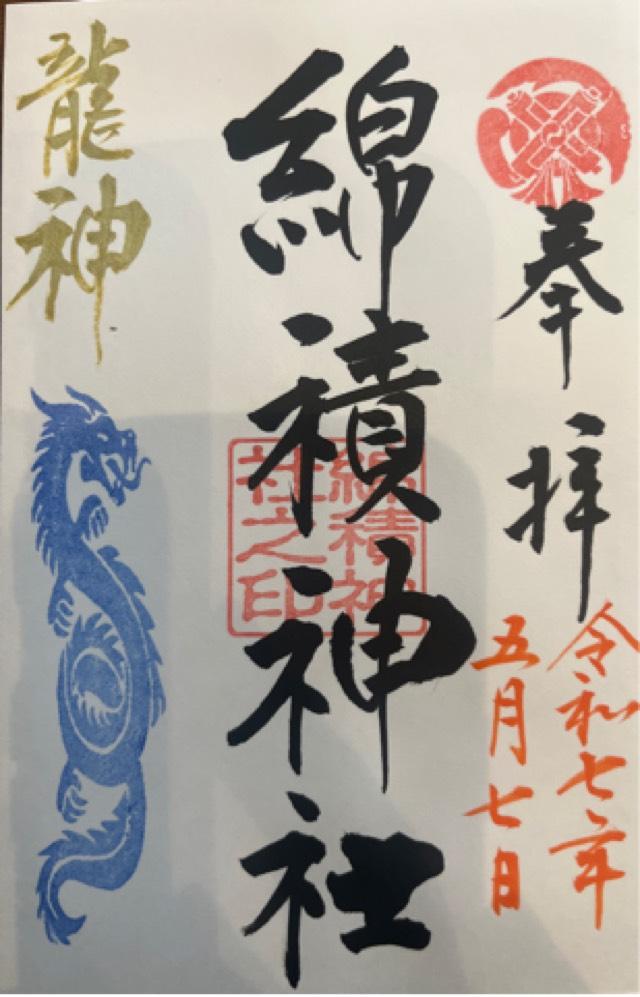 奉拝
令和七年
五月七日
綿積神社
綿積神
社之印
龍神